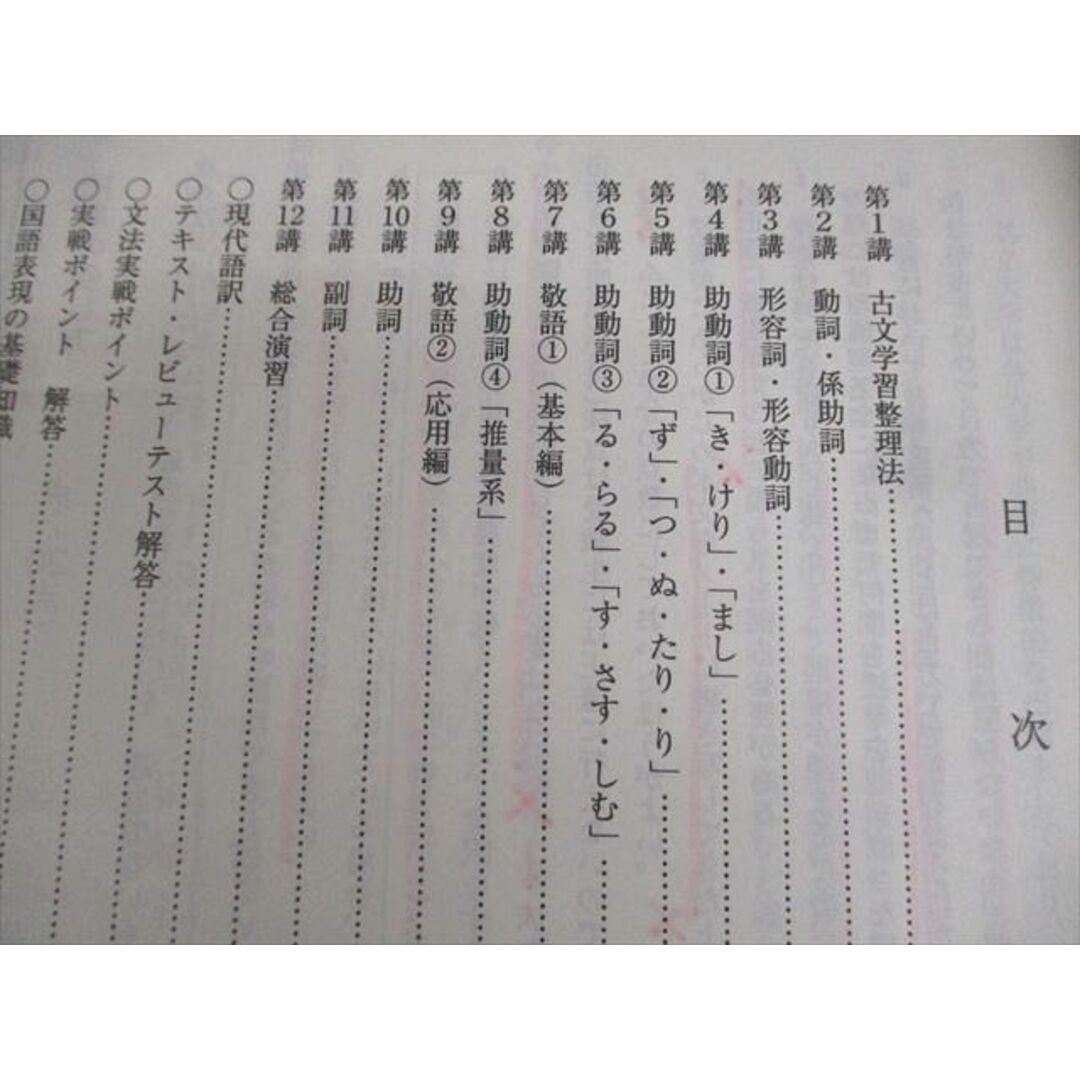 目次
第1講 古文学習整理法
第2講 動詞・係助詞
第3講 形容詞・形容動詞
第4講 助動詞①「き・けり」・「まし」
第5講 助動詞②「ず」・「つ・ぬ・たり・り」
第6講 助動詞③「る・らる」・「す・さす・しむ」
第7講 敬語①（基本編）
第8講 助動詞④「推量系」
第9講 敬語②（応用編）
第10講 助詞
第11講 副詞
第12講 総合演習
○現代語訳
○テキスト・レビューテスト解答
○文法実戦ポイント
○実戦ポイント 解答
○国語表現の基礎知識